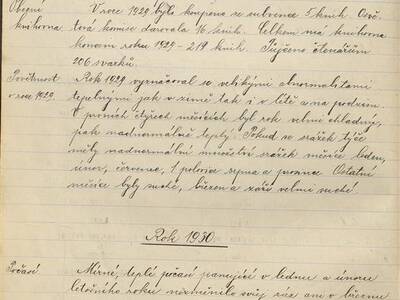 Obecní knihovna.
V roce 1929 bylo koupeno ze subvence 5 knih. Osvě-
tová komise darovala 16 knih. Celkem má knihovna
koncem roku 1929 - 219 knih. Půjčeno čtenářům
206 svazků.
Povětrnost v roce 1929.
Rok 1929 vyznačoval se velikými abnormalitami
tepelnými jak v zimě tak i v létě a na podzim.
V prvních čtyřech měsících byl rok velmi chladný,
pak nadnormálně teplý. Pokud se srážek týče
měly nadnormální množství srážek měsíce leden,
únor, červenec, 1 polovice srpna a prosince. Ostatní
měsíce byly suché, březen a září velmi suché.
Rok 1930.
Počasí
Mírné, teplé počasí panující v lednu a únoru
letošního roku nezměnilo svůj ráz ani v březnu